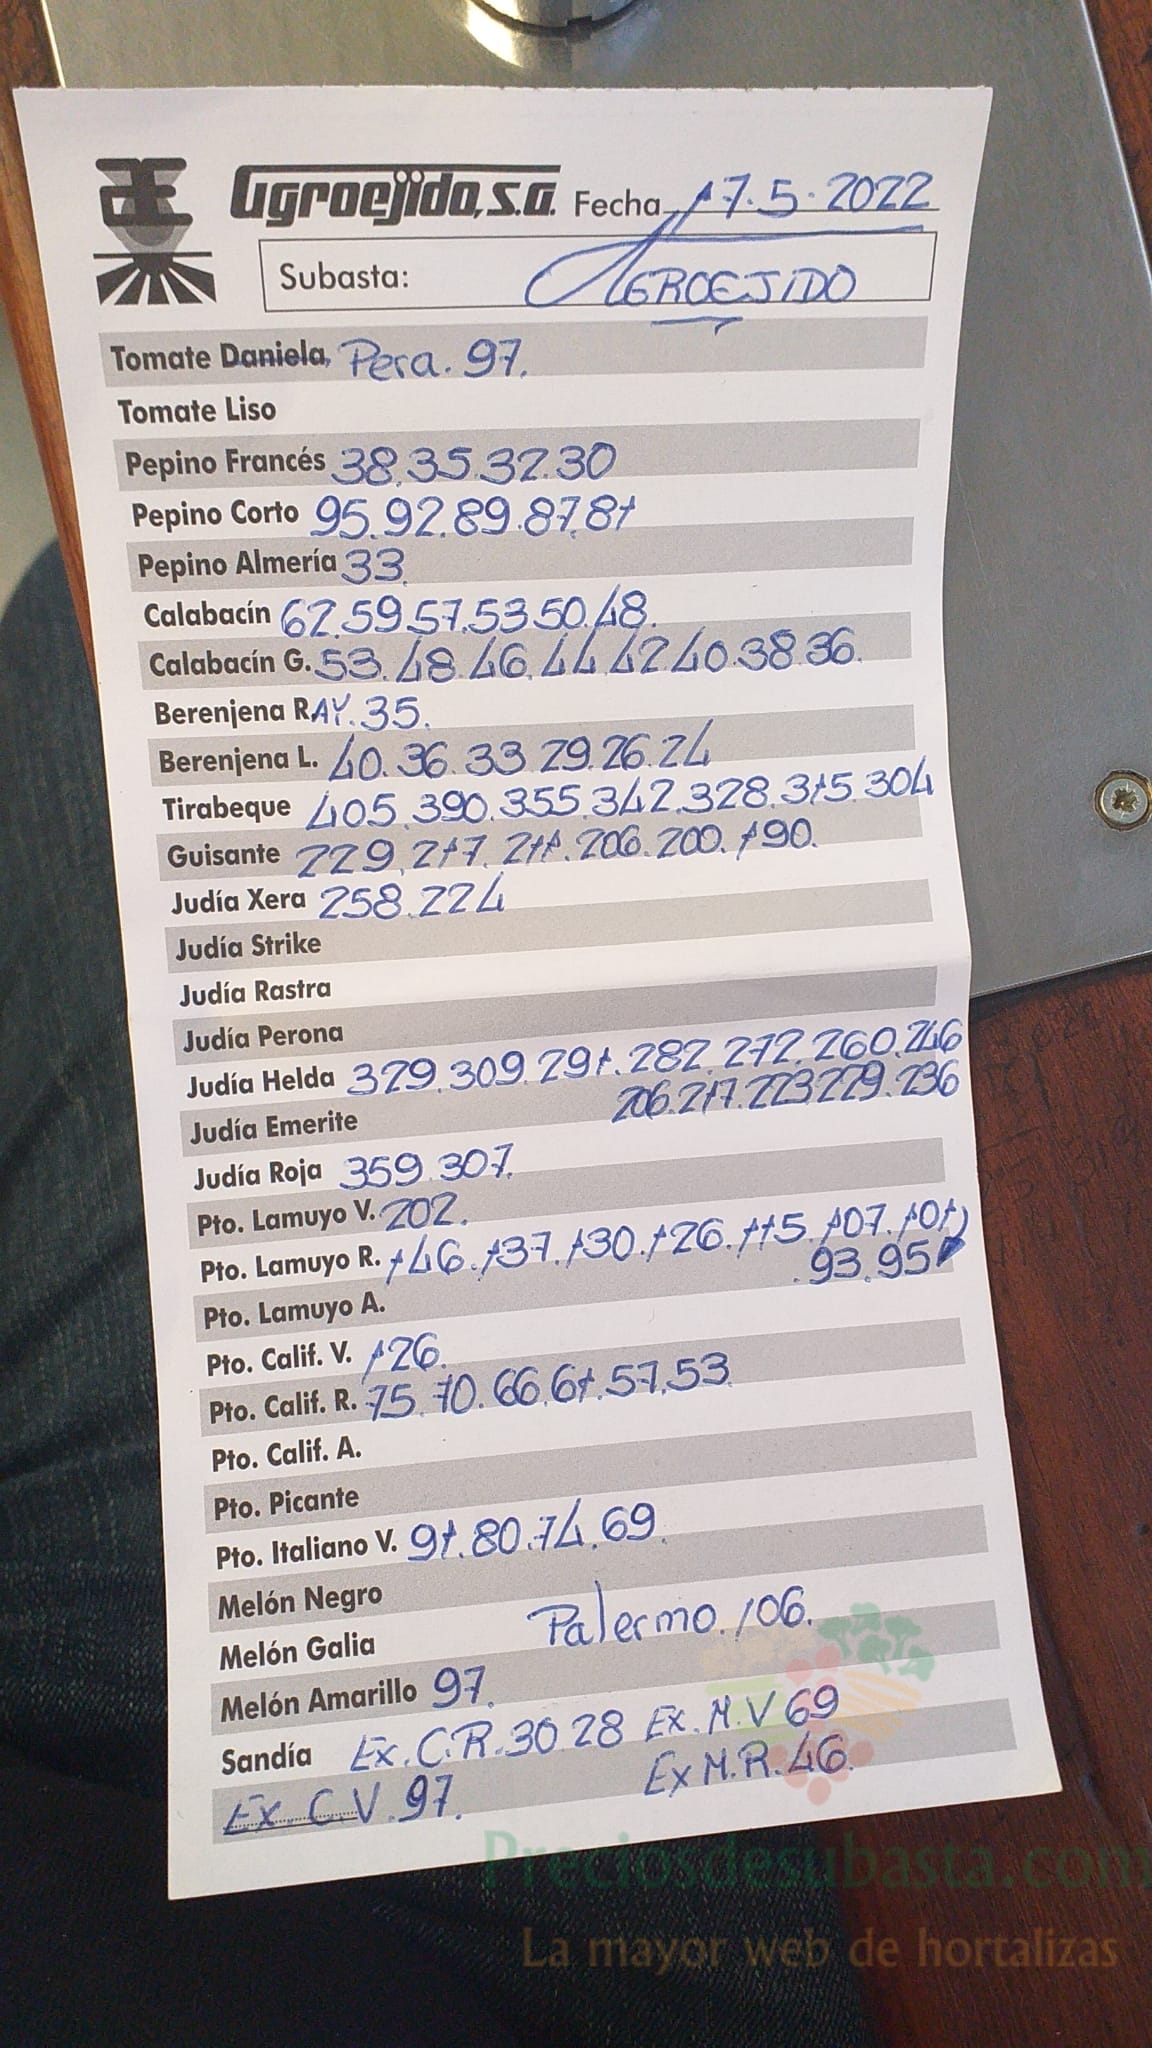 Agroejido, s.a. Fecha 17.5.2022
Subasta: AGROEJIDO
Tomate Daniela, Pera. 97.
Tomate Liso
Pepino Francés 38.35.32.30
Pepino Corto 95.92.89.87.81
Pepino Almería 33.
Calabacín 62.59.57.53.50.48.
Calabacín G. 53.48.46.44.42.40.38.36.
Berenjena RAY. 35.
Berenjena L. 40.36.33.29.26.24
Tirabeque 405.390.355.342.328.315.304
Guisante 229.217.211.206.200.190.
Judía Xera 258.224
Judía Strike
Judía Rastra
Judía Perona
Judía Helda 329.309.291.282.272.260.246
206.217.223.229.236
Judía Emerite
Judía Roja 359.307.
Pto. Lamuyo V. 202.
Pto. Lamuyo R. 146.137.130.126.115.107.101
.93.95
Pto. Lamuyo A.
Pto. Calif. V. 126.
Pto. Calif. R. 75.70.66.61.57.53.
Pto. Calif. A.
Pto. Picante
Pto. Italiano V. 91.80.74.69.
Melón Negro
Melón Galia Palermo. 106.
Melón Amarillo 97.
Sandía Ex. C.R. 30 28 Ex. M.V 69
Ex M.R. 46.
Ex C.V. 97.
Preciosdesubasta.com
La mayor web de hortalizas